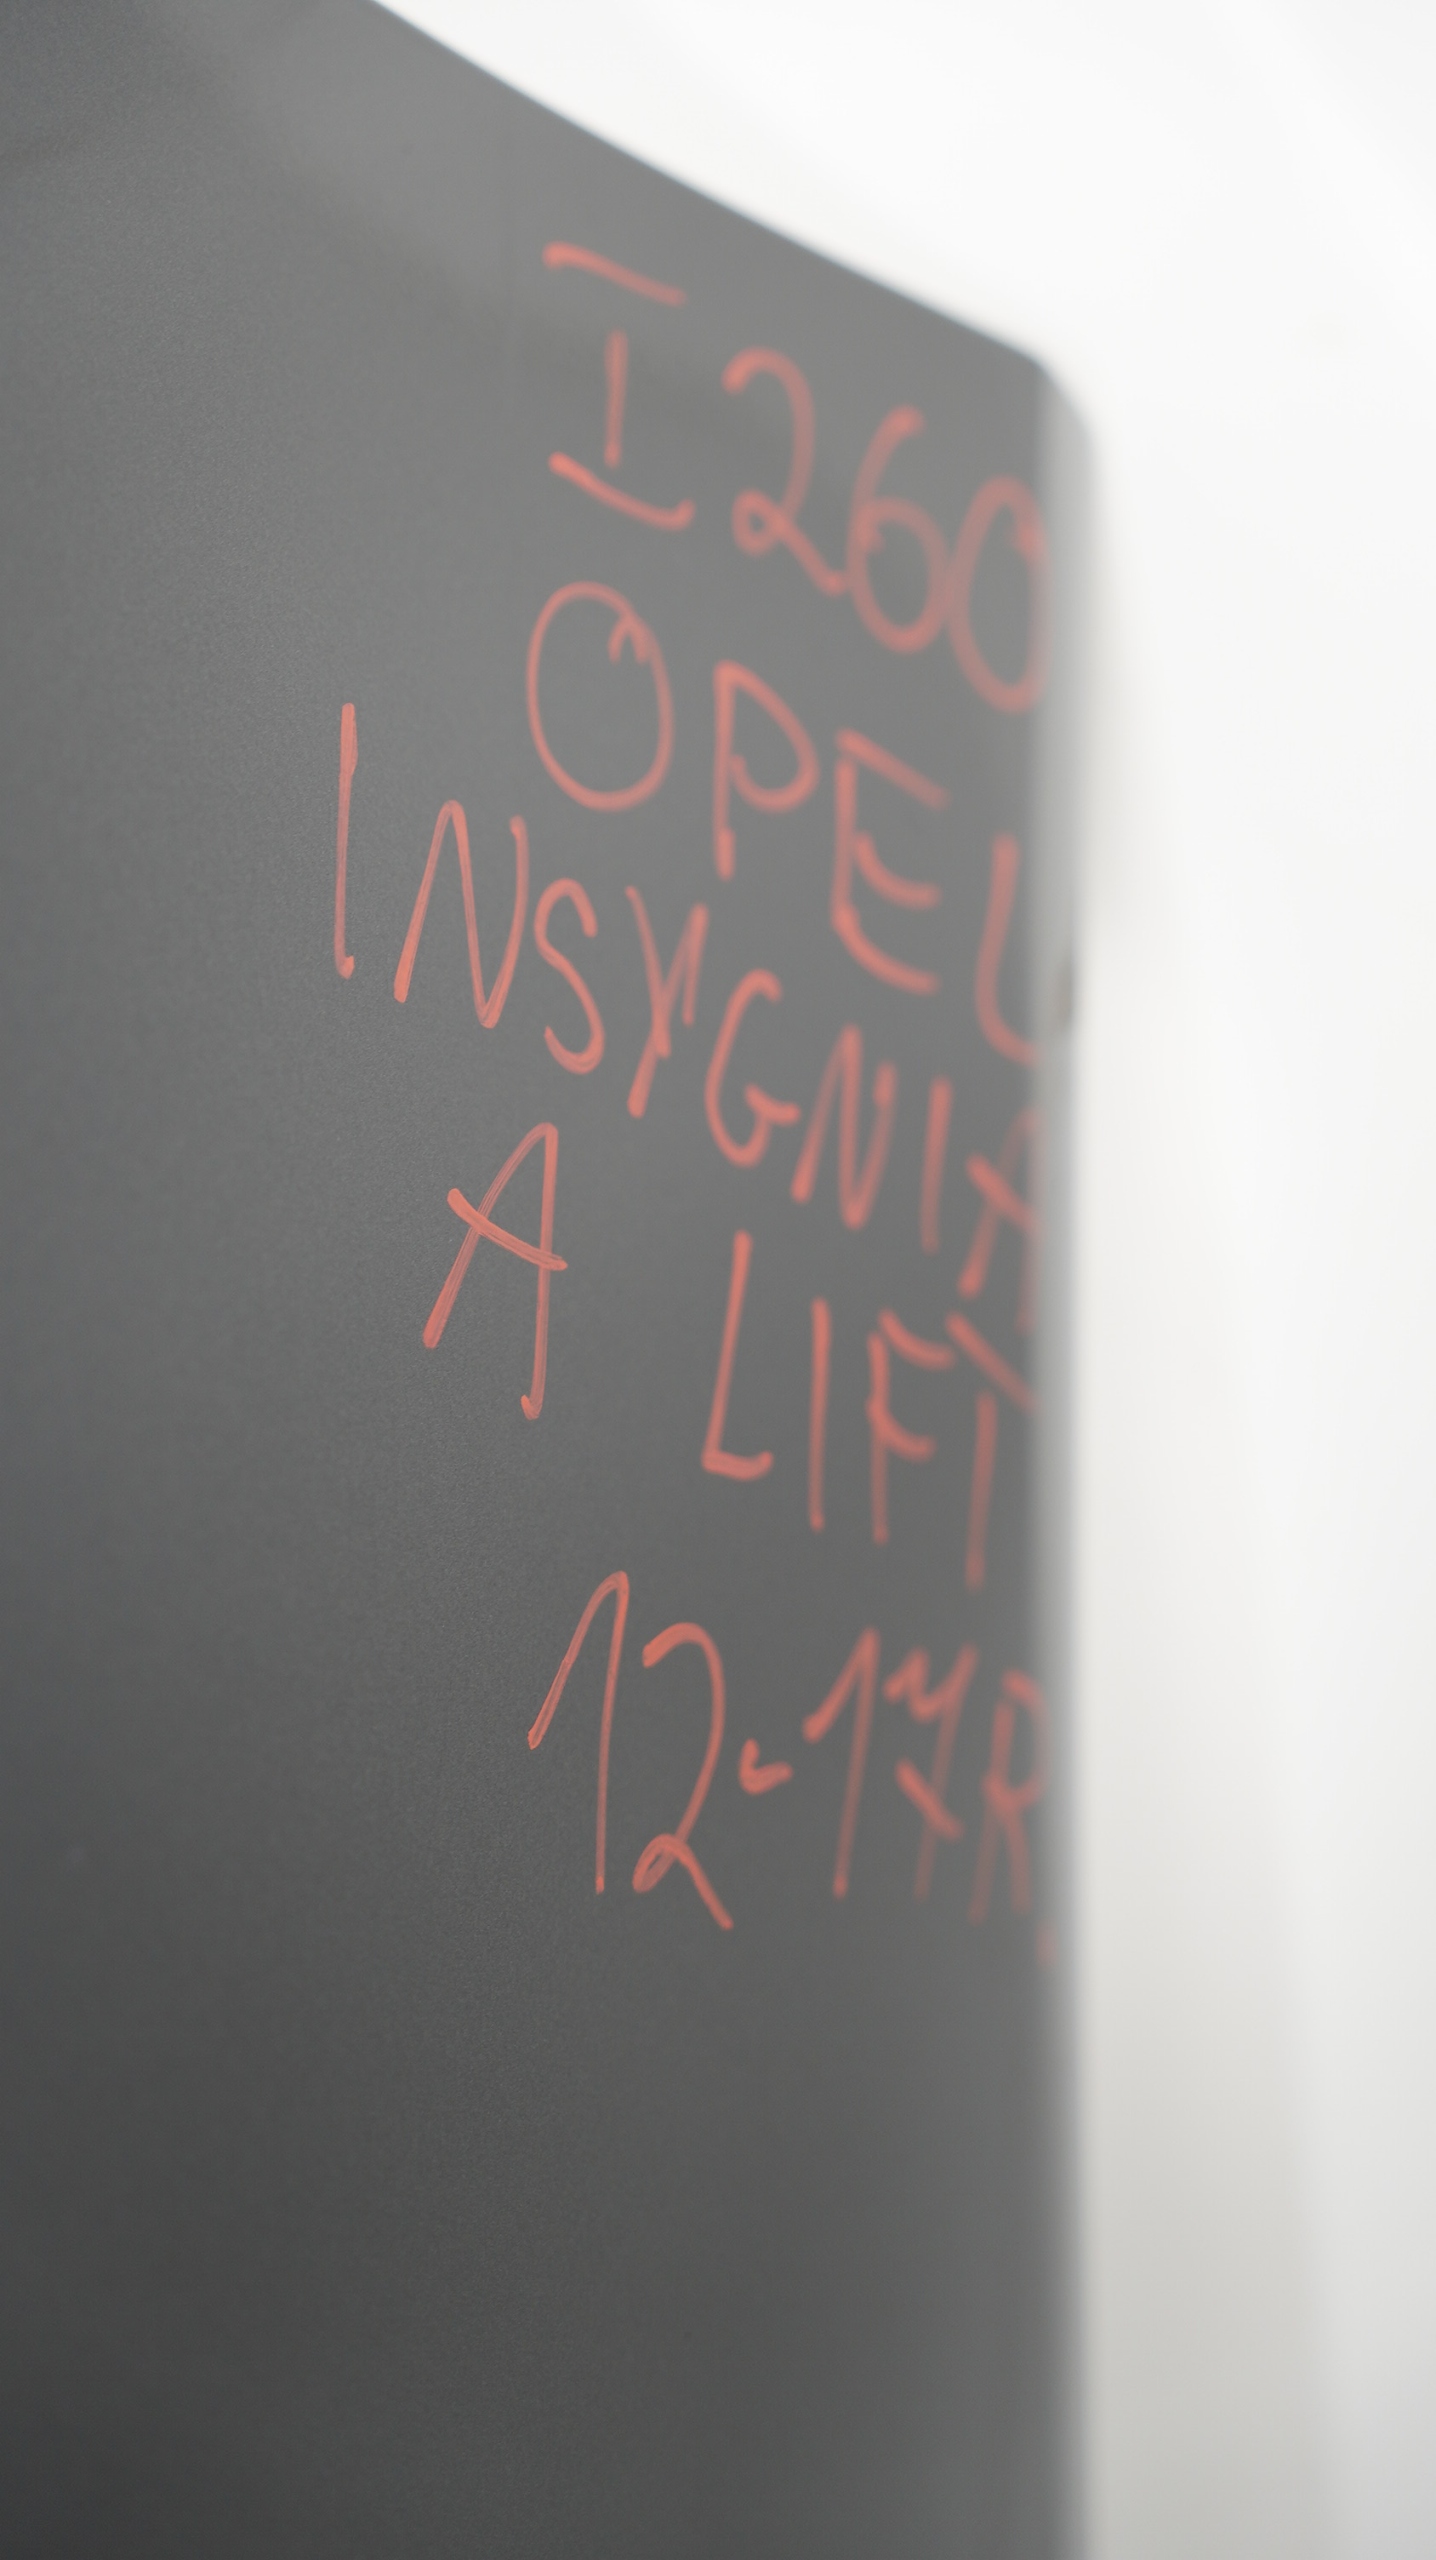 I 260
OPEL
INSYGNIA
A LIFT
12-14R.